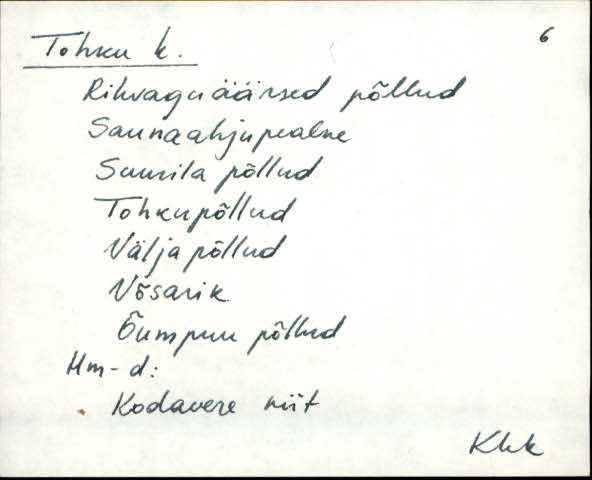 Tohku k. 6
Rihvaguäärsed põllud
Saunaahjupealne
Suurila põllud
Tohkupõllud
Väljapõllud
Võsarik
Õumpuu põllud
Hm-d:
Kodavere niit
Khk